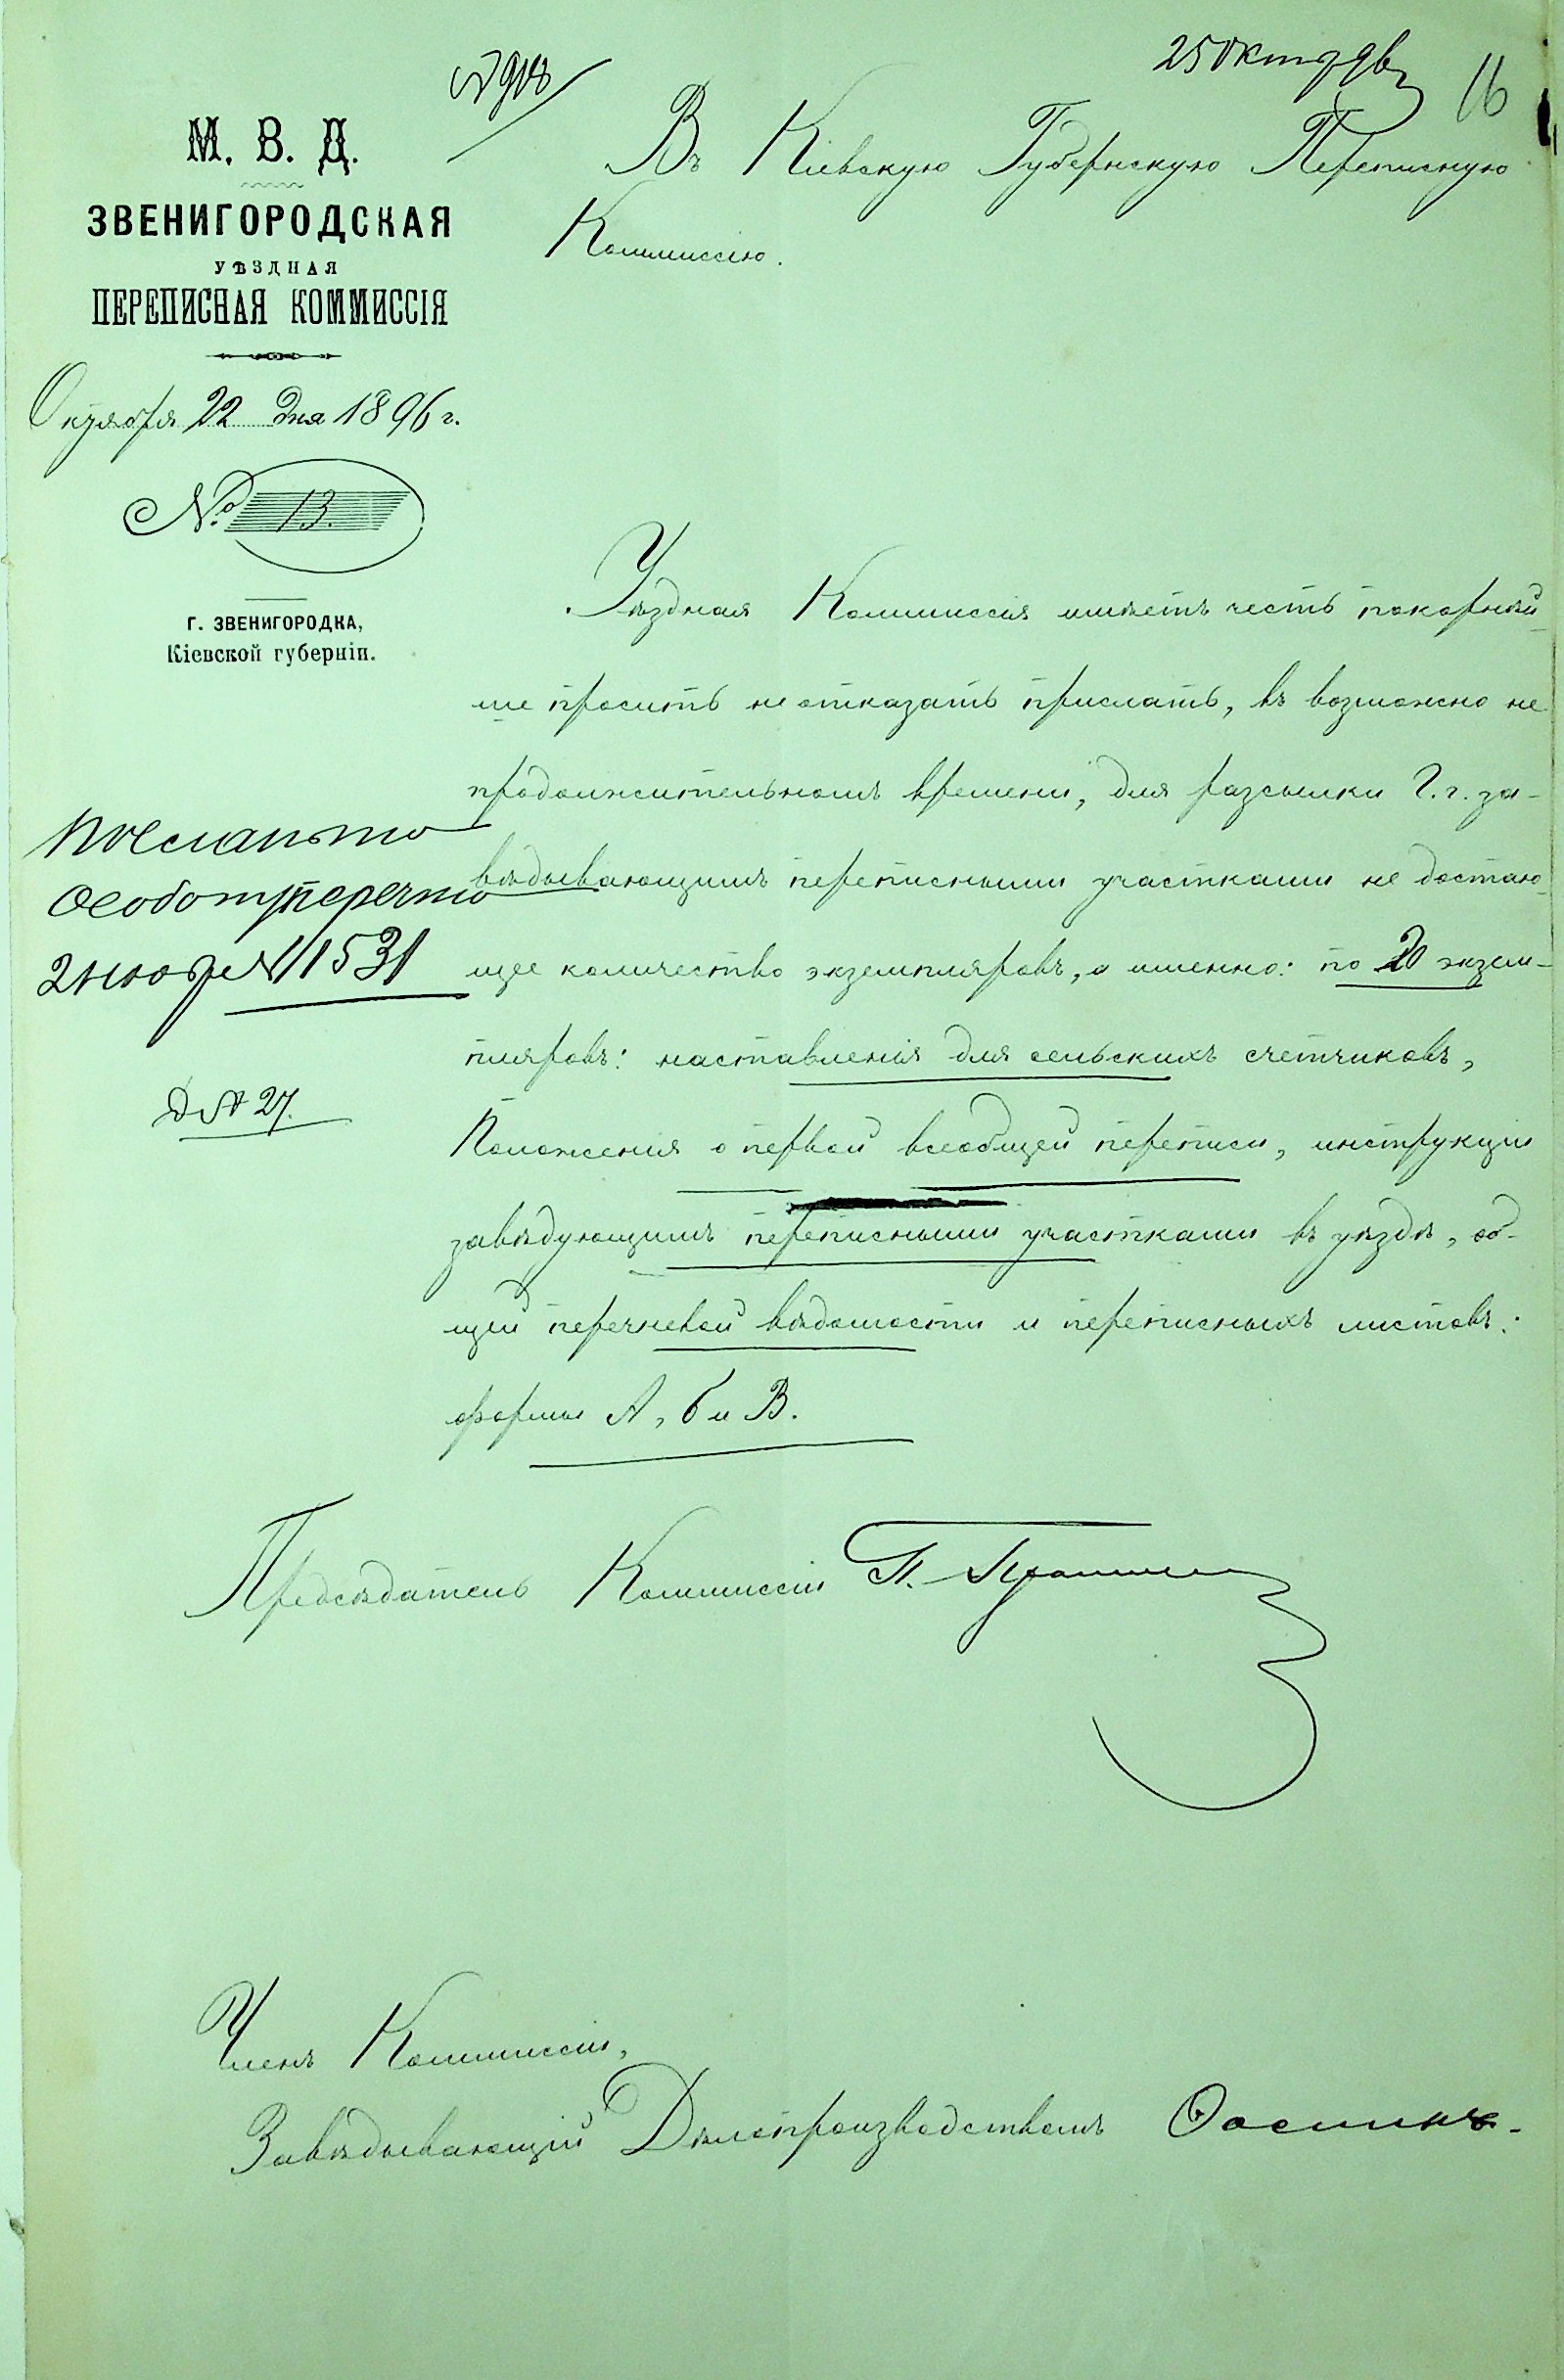 25 Октября
16
М. В. Д.
ЗВЕНИГОРОДСКАЯ
УѢЗДНАЯ
ПЕРЕПИСНАЯ КОММИССІЯ
Октября 22 дня 1896 г.
№ 13.
Г. ЗВЕНИГОРОДКА,
Кіевской губерніи.
Въ Кіевскую Губернскую Переписную
Коммиссію.
Уѣздная Коммиссія имѣетъ честь покорнѣй-
ше просить не отказать прислать, въ возможно не
продолжительномъ времени, для разсылки Г.г. за-
вѣдывающимъ переписными участками не достаю-
щее количество экземпляровъ, а именно: по 20 экзем-
пляровъ: наставленія для сельскихъ счетчиковъ,
Положенія о первой всеобщей переписи, инструкціи
завѣдующимъ переписными участками въ уѣздѣ, об-
щей перечневой вѣдомости и переписныхъ листовъ:
формы А, Б и В.
№ 1531
Д № 27.
Предсѣдатель Коммиссіи П.
Членъ Коммиссіи,
Завѣдывающій Дѣлопроизводствомъ